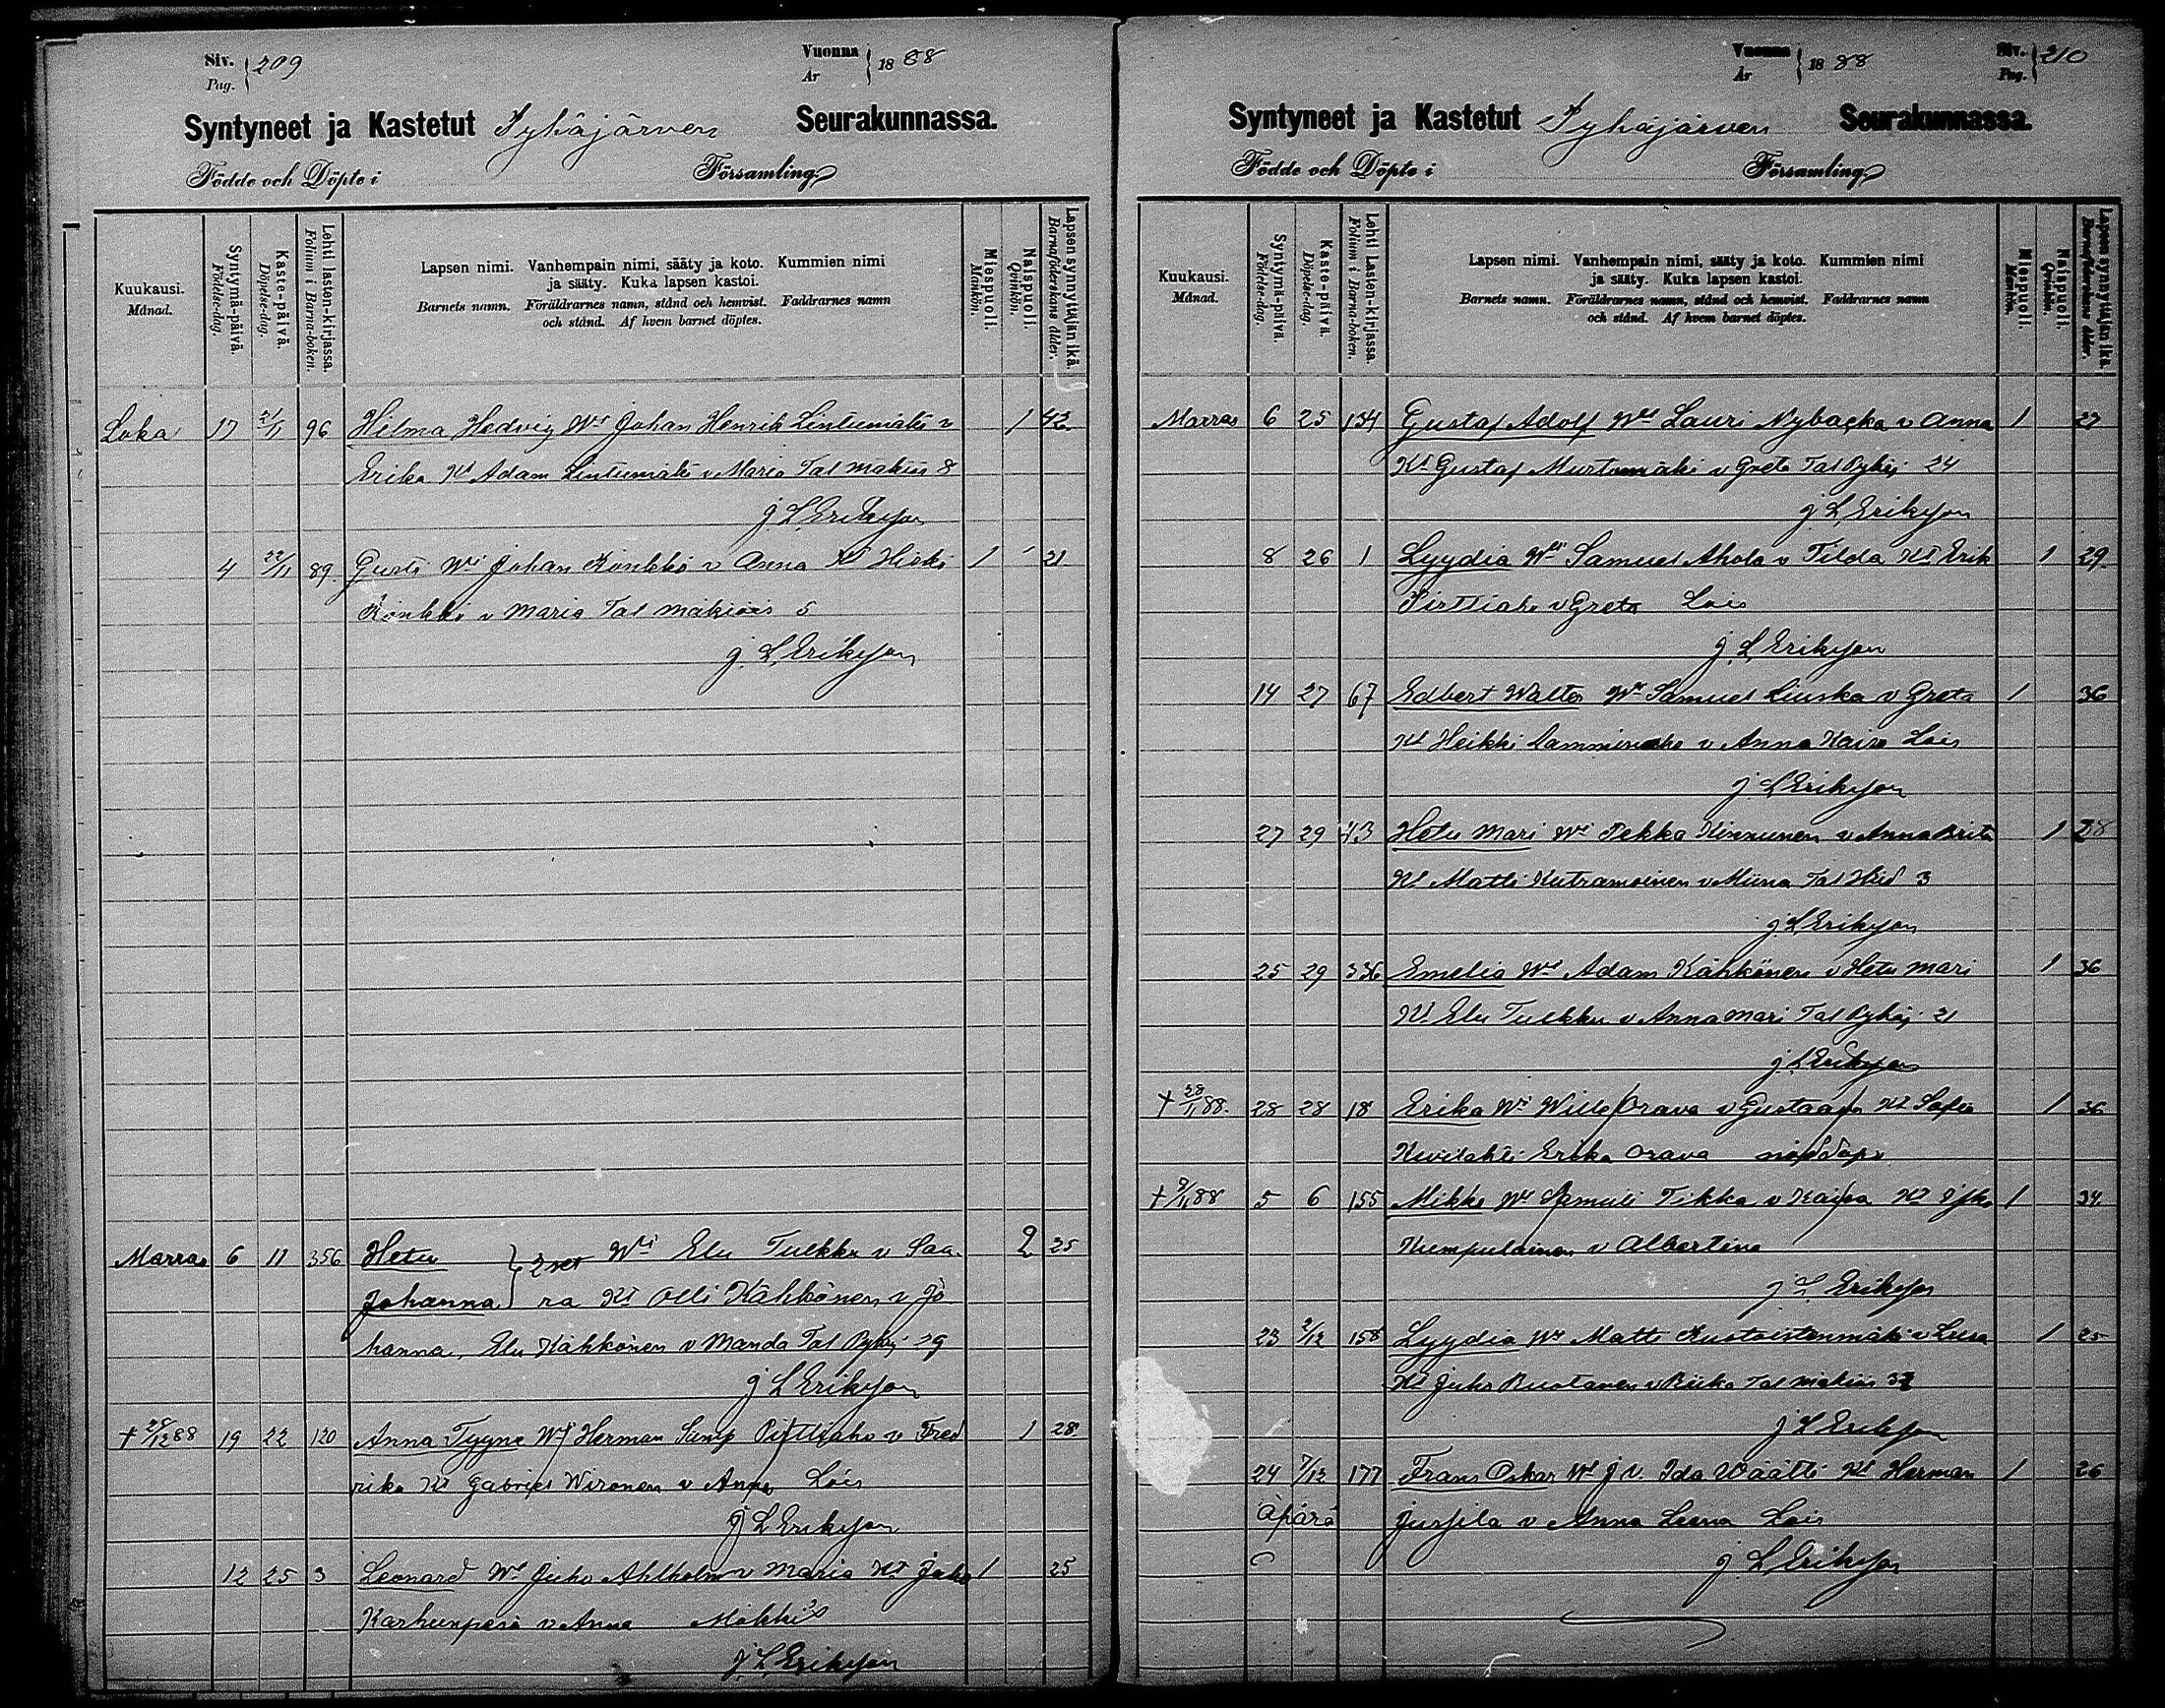 Siv. Pag. 209
Vuonna År 1888
Syntyneet ja Kastetut Pyhäjärven Seurakunnassa.
Födde och Döpte i Församling.
Kuukausi. Månad.
Syntymä-päivä. Födelse-dag.
Kaste-päivä. Döpelse-dag.
Lehti lasten-kirjassa. Folium i Barna-boken.
Lapsen nimi. Vanhempain nimi, sääty ja koto. Kummien nimi
ja sääty. Kuka lapsen kastoi.
Barnets namn. Föräldrarnes namn, stånd och hemvist. Faddrarnes namn
och stånd. Af hvem barnet döptes.
Miespuoli. Mankön.
Naispuoli. Qvinkön.
Lapsen synnyttäjän ikä. Barnaföderskans ålder.
Loka 17 21/11 96 Hilma Hedvig Wt Johan Henrik Lintumäki v 1 42
Erika Kt Adam Lintumäki v Maria Tal mäkiös 8
J. L. Erikson
4 22/11 89 Gusti Wt Johan Könkkö v Anna Kt Heikki 1 21
Könkkö v Maria Tal mäkiöis 5
J. L. Erikson
Marras 6 11 356 Hetu } 2set Wti Elu Tulkku v Saa- 2 25
Johanna } ra Kt Olli Kähkönen v Jo
hanna, Elu Kähkönen v Manda Tal Pyhäj 29
J L Erikson
+ 28/12 88 19 22 120 Anna Tyyne Wt Herman Pirttiaho v Fred 1 28
rika Kt Gabriel Wironen v Anna Lois
J L Erikson
12 25 3 Leonard Wt Juho Ahlholm v Maria Kt Juho 1 25
Karhunpesä v Anna Mökki
J. L. Erikson
Vuonna År 1888
Siv. Pag. 210
Syntyneet ja Kastetut Pyhäjärven Seurakunnassa.
Födde och Döpte i Församling.
Kuukausi. Månad.
Syntymä-päivä. Födelse-dag.
Kaste-päivä. Döpelse-dag.
Lehti Lasten-kirjassa. Folium i Barna-boken.
Lapsen nimi. Vanhempain nimi, sääty ja koto. Kummien nimi
ja sääty. Kuka lapsen kastoi.
Barnets namn. Föräldrarnes namn, stånd och hemvist. Faddrarnes namn
och stånd. Af hvem barnet döptes.
Miespuoli. Mankön.
Naispuoli. Qvinkön.
Lapsen synnyttäjän ikä. Barnaföderskans ålder.
Marras 6 25 134 Gustaf Adolf Wt Lauri Nybacka v Anna 1 27
Kt Gustaf Murtomäki v Greta Tal Pyhäj 24
J. L. Erikson
8 26 1 Lyydia Wt Samuel Ahola v Tilda Kt Erik 1 29
Pirttiaho v Greta Lois
J. L. Erikson
14 27 67 Edbert Walter Wt Samuel Liuska v Greta 1 36
Kt Heikki Lamminaho v Anna Kaisa Lois
J. L Erikson
27 29 43 Hetu Mari Wt Pekka Kinnunen v Anna Brita 1 28
Kt Matti Kutramoinen v Miina Tal Hiid 3
J. L Erikson
25 29 336 Emelia Wt Adam Kähkönen v Hetu Mari 1 36
Kt Elu Tulkku v Anna Mari Tal Pyhäj 21
J. L Erikson
+ 28/11 88. 28 28 18 Erika Wt Wille Orava v Gustaava Kt Sofia 1 36
Kivilahti Erika Orava nöddöpt
+ 9/11 88 5 6 155 Mikko Wt Samuli Tikka v Kaisa Kt 1 34
Kumpulainen v Albertina
J L Erikson
23 2/12 158 Lyydia Wt Matti v Liisa 1 25
Kt Juho Ruotanen v Riika Tal mäkiös 37
J L Erikson
24 7/12 177 Frans Oskar Wt J v. Ida Väätti Kt Herman 1 26
äpärä Jussila v Anna Leena Lois
J. L Erikson